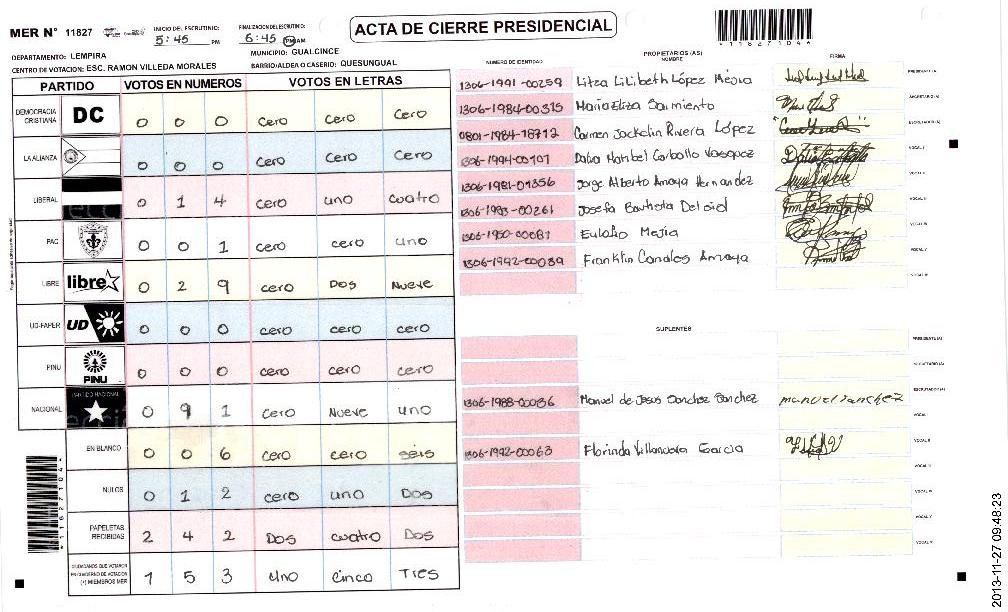 MER N° 11827
INICIO DEL ESCRUTINIO: 5:45 PM
FINALIZACION DEL ESCRUTINIO: 6:45 PM AM
ACTA DE CIERRE PRESIDENCIAL
118271046
DEPARTAMENTO: LEMPIRA
MUNICIPIO: GUALCINCE
CENTRO DE VOTACION: ESC. RAMON VILLEDA MORALES
BARRIO/ALDEA O CASERIO: QUESUNGUAL
PARTIDO VOTOS EN NUMEROS VOTOS EN LETRAS
DEMOCRACIA CRISTIANA DC 0 0 0 cero cero cero
LA ALIANZA 0 0 0 cero cero cero
LIBERAL 0 1 4 cero uno cuatro
PAC 0 0 1 cero cero uno
LIBRE libre 0 2 9 cero Dos Nueve
UD-FAPER UD 0 0 0 cero cero cero
PINU PINU 0 0 0 cero cero cero
NACIONAL PARTIDO NACIONAL 0 9 1 cero Nueve uno
EN BLANCO 0 0 6 cero cero seis
NULOS 0 1 2 cero uno Dos
PAPELETAS RECIBIDAS 2 4 2 Dos cuatro Dos
CIUDADANOS QUE VOTARON EN CUADERNO DE VOTACION (+) MIEMBROS MER 1 5 3 uno cinco Tres
NUMERO DE IDENTIDAD PROPIETARIOS (AS) NOMBRE FIRMA
1306-1991-00259 Litza Lilibeth López Mejia PRESIDENTE (A)
1306-1984-00315 Maria Eliza Sarmiento SECRETARIO (A)
0801-1984-18712 Carmen Jackelin Rivera López ESCRUTADOR (A)
1306-1994-00101 Dalia Maribel Carballo Vasquez VOCAL I
1306-1981-01356 Jorge Alberto Amaya Hernandez VOCAL II
1306-1993-00261 Josefa Bautista Delcid VOCAL III
1306-1950-00081 Eulalio Mejia VOCAL IV
1306-1992-00089 Franklin Canales Amaya VOCAL V
SUPLENTES
PRESIDENTE (A)
SECRETARIO (A)
1306-1988-00086 Manuel de Jesus Sanchez Sanchez manuel sanchez ESCRUTADOR (A)
VOCAL I
1306-1992-00063 Florinda Villanueva Garcia VOCAL II
VOCAL III
VOCAL IV
VOCAL V
2013-11-27 09:48:23